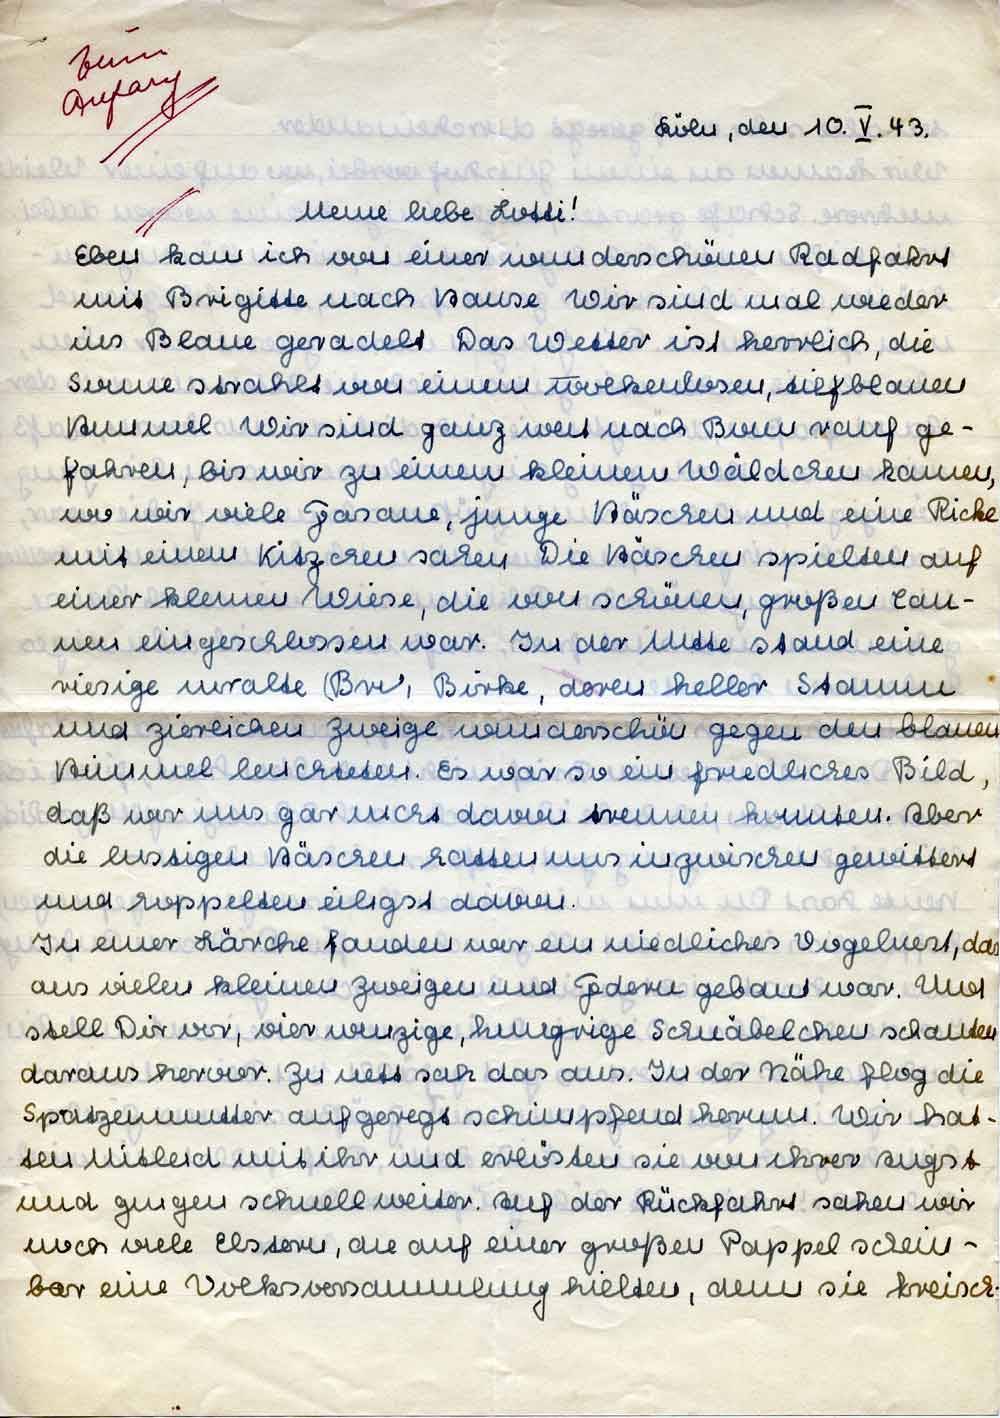 Zum
Anfang
Köln, den 10. V. 43.
Meine liebe Lotti!
Eben kam ich von einer wunderschönen Radfahrt
mit Brigitte nach Hause Wir sind mal wieder
ins Blaue geradelt Das Wetter ist herrlich, die
Sonne strahlt von einem wolkenlosen, tiefblauen
Himmel Wir sind ganz weit nach Bonn rauf ge-
fahren, bis wir zu einem kleinen Wäldchen kamen,
wo wir viele Fasane, junge Häschen und eine Ricke
mit einem Kitzchen sahen Die Häschen spielten auf
einer kleinen Wiese, die von schönen, großen Tan-
nen eingeschlossen war. In der Mitte stand eine
riesige uralte (Bri), Birke, deren heller Stamm
und ziereichen Zweige wunderschön gegen den blauen
Himmel leuchteten. Es war so ein friedliches Bild,
daß wir uns gar nicht davon trennen konnten. Aber
die lustigen Häschen hatten uns inzwischen gewittert
und hoppelten eiligst davon.
In einer Lärche fanden wir ein niedliches Vogelnest, das
aus vielen kleinen Zweigen und Federn gebaut war. Und
stell Dir vor, vier winzige, hungrige Schnäbelchen schauten
daraus hervor. Zu nett sah das aus. In der Nähe flog die
Spatzenmutter aufgeregt schimpfend herum. Wir hat-
ten Mitleid mit ihr und erlösten sie von ihrer Angst
und gingen schnell weiter. Auf der Rückfahrt sahen wir
noch viele Elstern, die auf einer großen Pappel schein-
bar eine Volksversammlung hielten, denn sie kreisch-